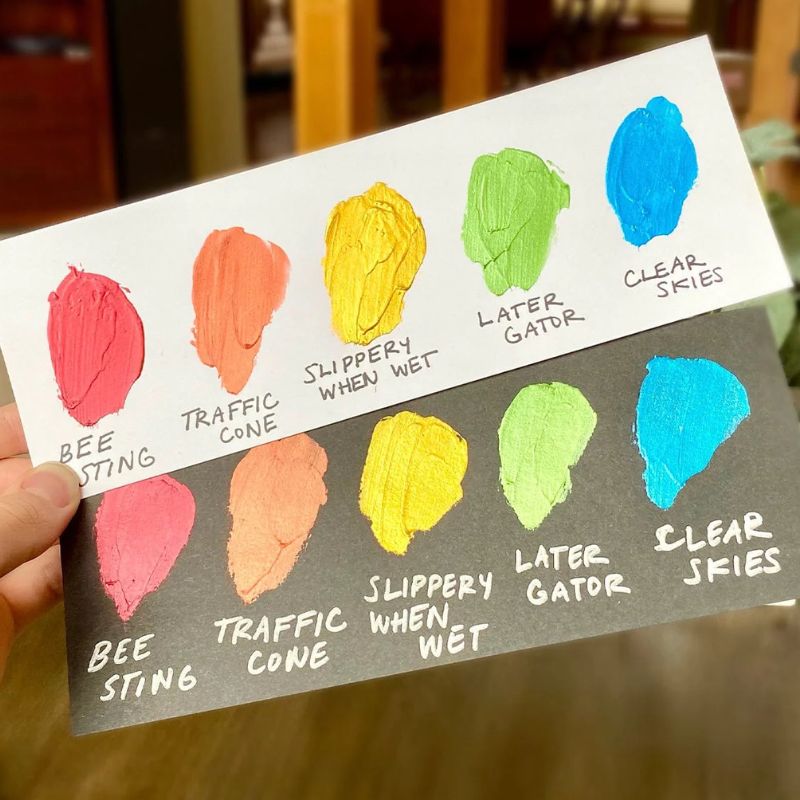 BEE
STING
TRAFFIC
CONE
SLIPPERY
WHEN WET
LATER
GATOR
CLEAR
SKIES
BEE
STING
TRAFFIC
CONE
SLIPPERY
WHEN
WET
LATER
GATOR
CLEAR
SKIES